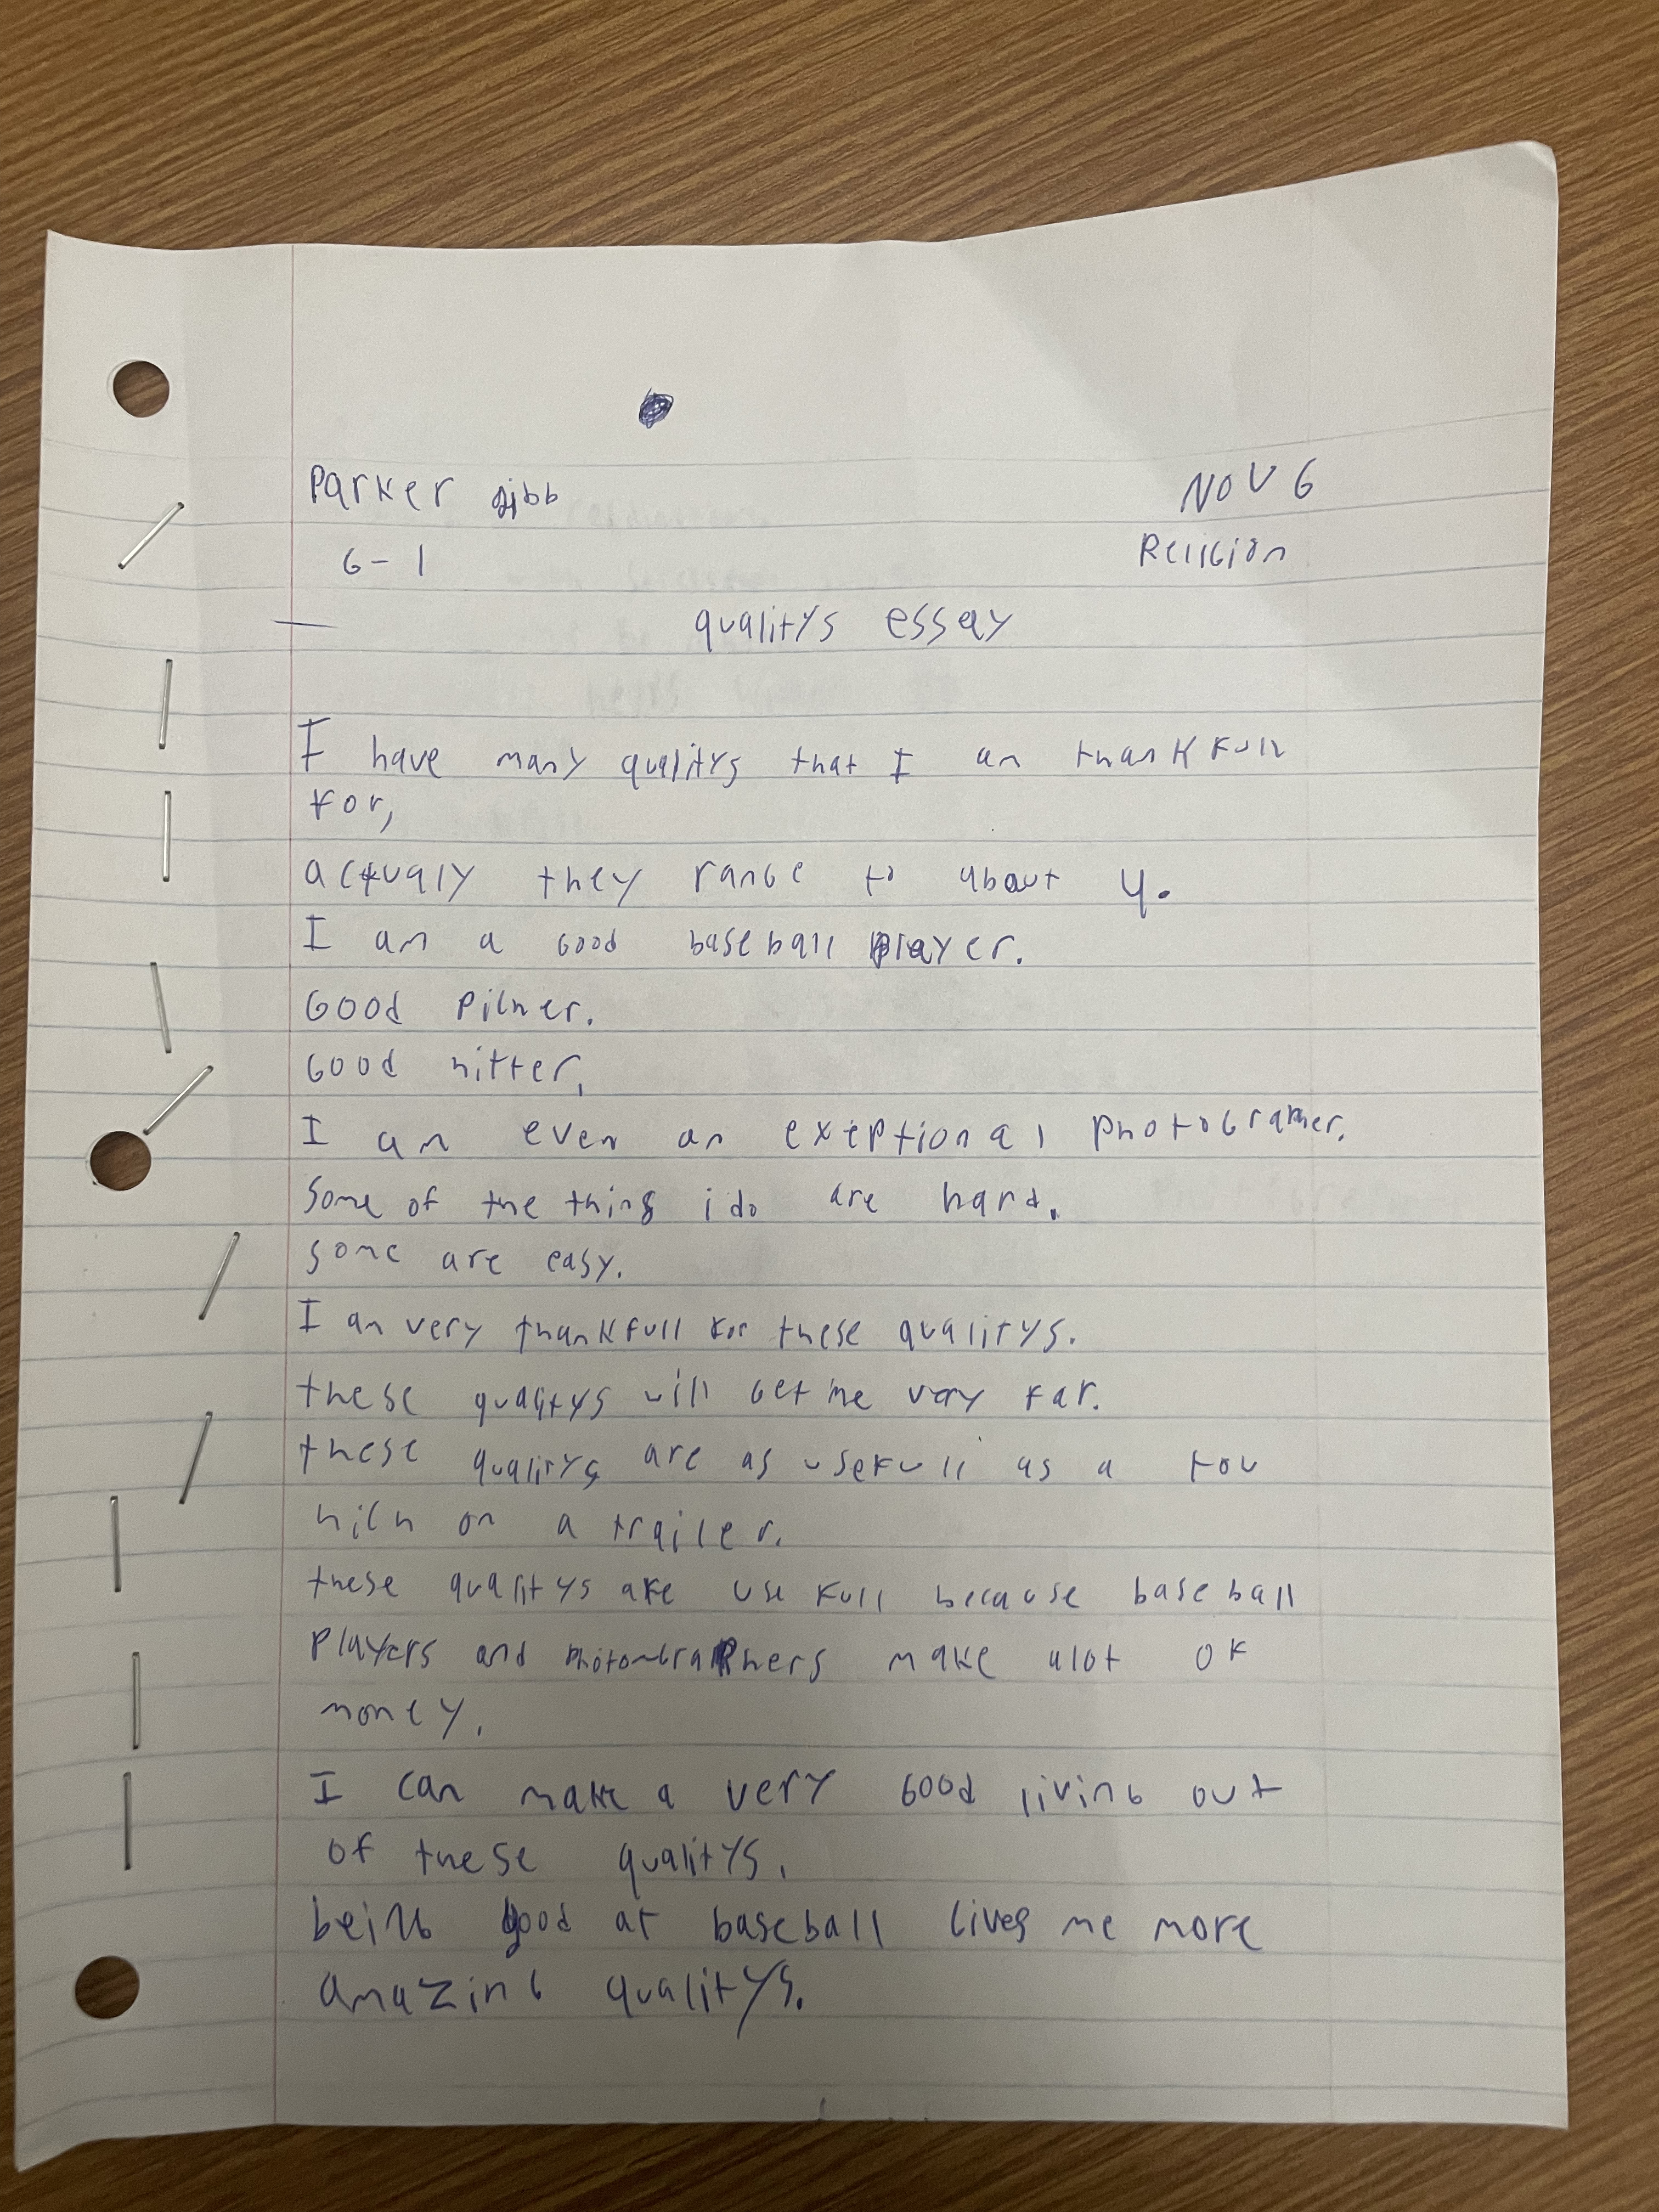 Parker gibb
NOV 6
6-1
Religion
qualitys essay
I have many qualitys that I am thankfull
for,
actualy they range to about 4.
I am a Good baseball player.
Good Picher.
Good hitter,
I am even an exeptional Photographer.
Some of the things i do are hard.
some are easy.
I am very thankfull for these qualitys.
these qualitys will Get me very far.
these qualitys are as usefull as a tow
hich on a trailer.
these qualitys are usefull because baseball
Players and Photographers make alot of
money.
I can make a very Good living out
of these qualitys.
being good at baseball Gives me more
amazing qualitys.